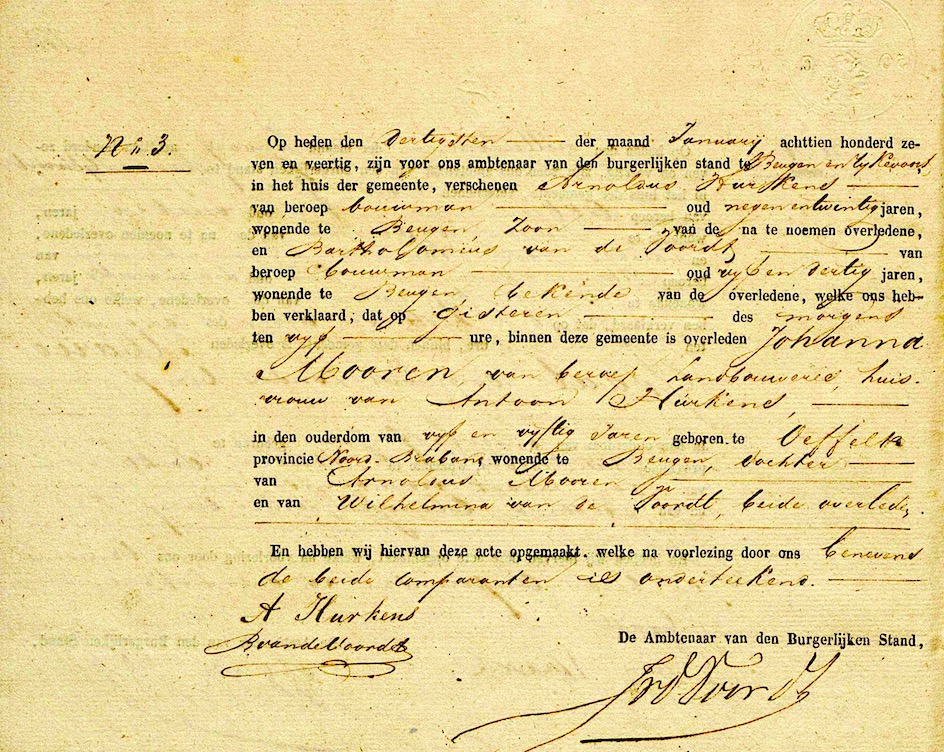 N.º 3.
Op heden den dertigsten der maand January achttien honderd ze-
ven en veertig, zijn voor ons ambtenaar van den burgerlijken stand te Beugen en Rykevoort,
in het huis der gemeente, verschenen Arnoldus Hurkens
van beroep bouwman oud negen en twintig jaren,
wonende te Beugen, Zoon van de na te noemen overledene,
en Bartholomeus van de Voordt van
beroep bouwman oud vyf en dertig jaren,
wonende te Beugen, bekende van de overledene, welke ons heb-
ben verklaard, dat op gisteren des morgens
ten vyf ure, binnen deze gemeente is overleden Johanna
Mooren, van beroep landbouwerse, huis-
vrouw van Antoon Hurkens,
in den ouderdom van vyf en vyftig Jaren geboren te Oeffelt
provincie Noord-Braband, wonende te Beugen, dochter
van Arnoldus Mooren
en van Wilhelmina van de Voordt, beide overleden,
En hebben wij hiervan deze acte opgemaakt, welke na voorlezing door ons benevens
de beide comparanten is onderteekend.
A Hurkens
B van de Voordt
De Ambtenaar van den Burgerlijken Stand,